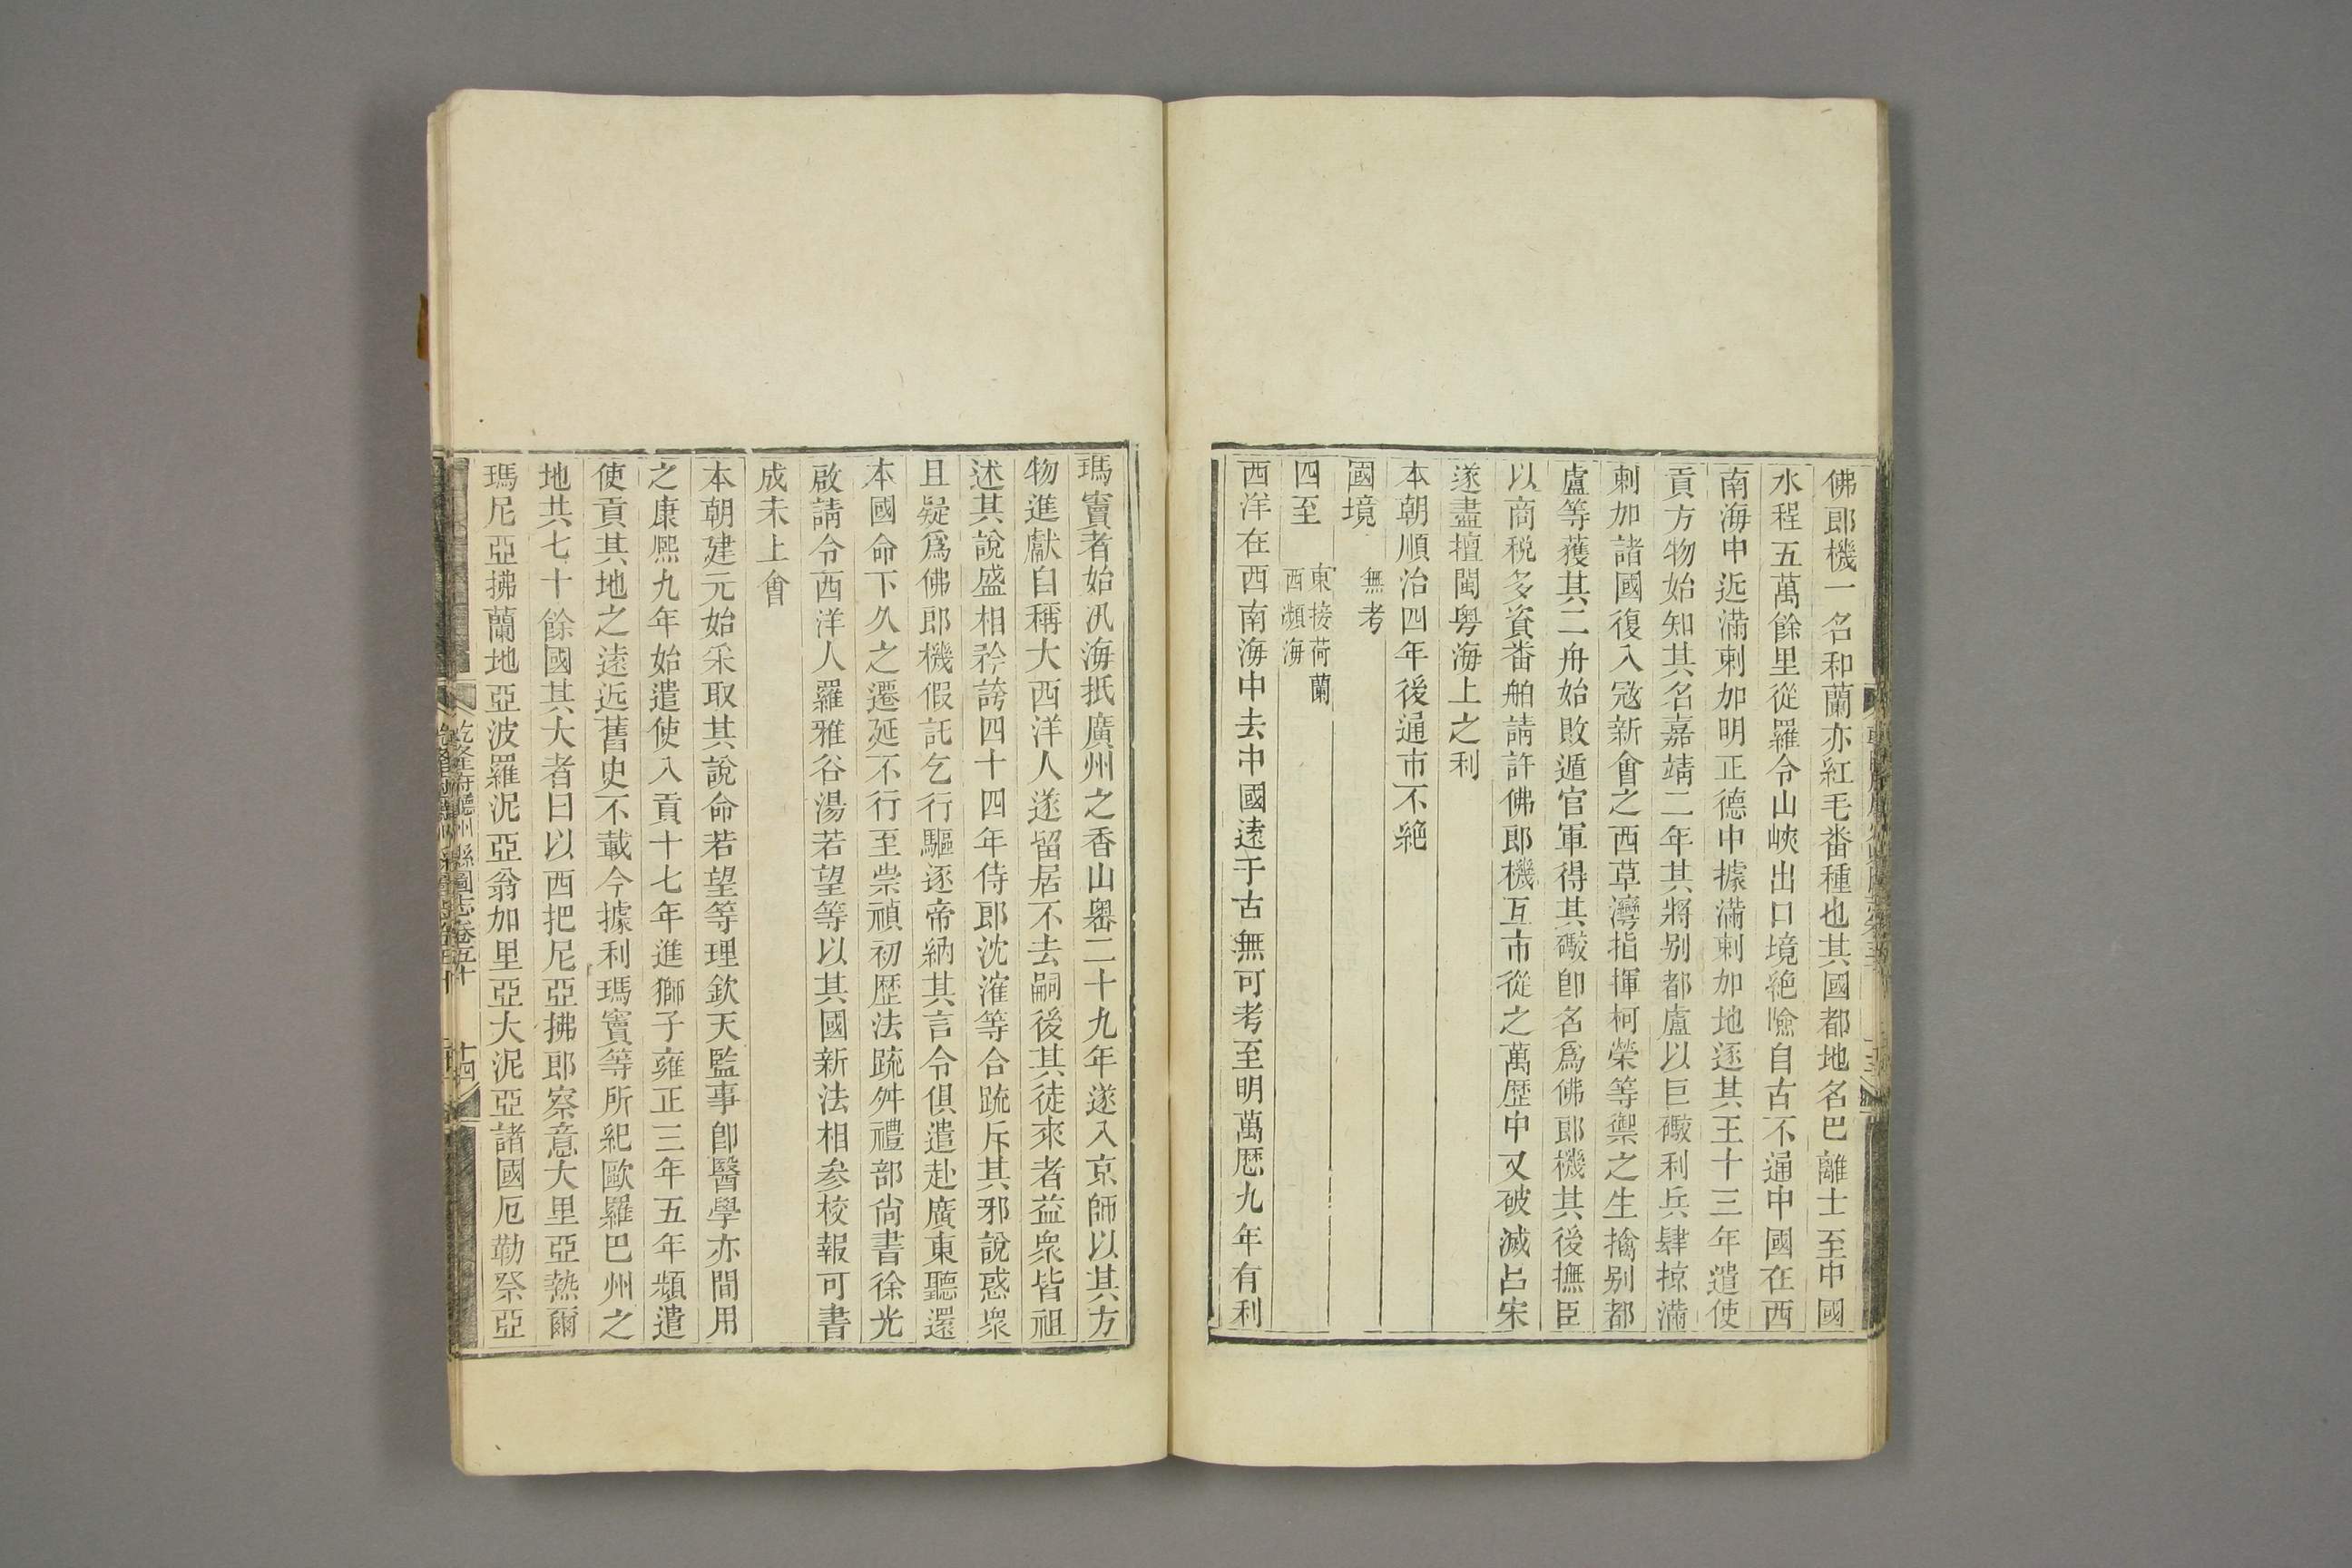 佛郎機一名和蘭亦紅毛番種也其國都地名巴離士至中國
水程五萬餘里從羅令山峽出口境絶險自古不通中國在西
南海中近滿剌加明正德中據滿剌加地逐其王十三年遣使
貢方物始知其名嘉靖二年其將别都盧以巨礮利兵肆掠滿
剌加諸國復入寇新會之西草灣指揮柯榮等禦之生擒别都
盧等獲其二舟始敗遁官軍得其礮卽名爲佛郎機其後撫臣
以商稅多資番舶請許佛郎機互市從之萬歴中又破滅呂宋
遂盡擅閩粤海上之利
本朝順治四年後通市不絶
國境 無考
四至 東接荷蘭
西瀕海
西洋在西南海中去中國遠于古無可考至明萬厯九年有利
瑪竇者始汎海抵廣州之香山嶴二十九年遂入京師以其方
物進獻自稱大西洋人遂留居不去嗣後其徒來者益衆皆祖
述其說盛相矜誇四十四年侍郎沈㴶等合疏斥其邪說惑衆
且疑爲佛郎機假託乞行驅逐帝納其言令俱遣赴廣東聽還
本國命下久之遷延不行至崇禎初歴法疏舛禮部尙書徐光
啟請令西洋人羅雅谷湯若望等以其國新法相參校報可書
成未上會
本朝建元始采取其說命若望等理欽天監事卽醫學亦間用
之康熙九年始遣使入貢十七年進獅子雍正三年五年頻遣
使貢其地之遠近舊史不載今據利瑪竇等所紀歐羅巴州之
地共七十餘國其大者曰以西把尼亞拂郎察意大里亞熱爾
瑪尼亞拂蘭地亞波羅泥亞翁加里亞大泥亞諸國厄勒祭亞
乾隆府廳州縣圖志卷五十
十四